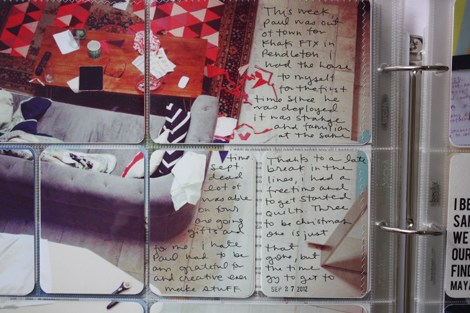 This week
Paul was out
of town for
Khaki FTX in
Pendleton. i
had the house
to myself
for the first
time since he
was deployed
it was strange
and familiar
at the same
time
sept
lot of
was able
on four
are going
gifts and
to me. i hate
Paul had to be
any grateful for
and creative
make stuff
Thanks to a late
break in the
lines, i had a
free time and
to get started
quilts. Three
to be christmas
one is just
that
gone, but
the time
gy to get to
SEP 27 2012
I BE
SAM
WE
OUR
FIND
MAYA